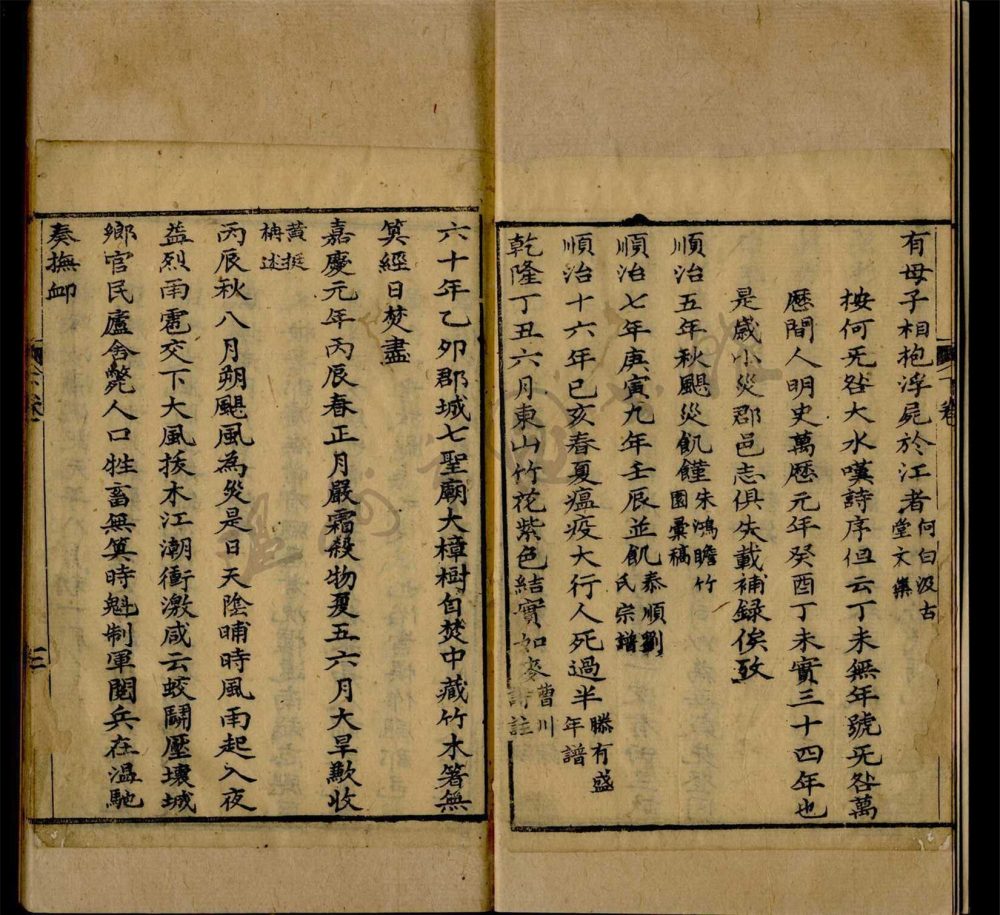 有母子相抱浮屍於江者何白汲古堂文集
按何旡咎大水嘆詩序但云丁未無年號旡咎萬
厯間人明史萬厯元年癸酉丁未實三十四年也
是歲小災郡邑志俱失載補録俟攷
順治五年秋颶災飢饉朱鴻瞻竹園彙稿
順治七年庚寅九年壬辰並飢泰順劉氏宗譜
順治十六年己亥春夏瘟疫大行人死過半滕有盛年譜
乾隆丁丑六月東山竹花紫色結實如麥曹川詩註
六十年乙卯郡城七聖廟大樟樹自焚中藏竹木箸無
筭經日焚盡
嘉慶元年丙辰春正月嚴霜殺物夏五六月大旱歉收
黄挺栴述
丙辰秋八月朔颶風為災是日天陰晡時風雨起入夜
益烈雨雹交下大風拔木江潮衝激咸云蛟鬭壓壞城
鄉官民廬舍斃人口牲畜無筭時魁制軍閱兵在温馳
奏撫卹